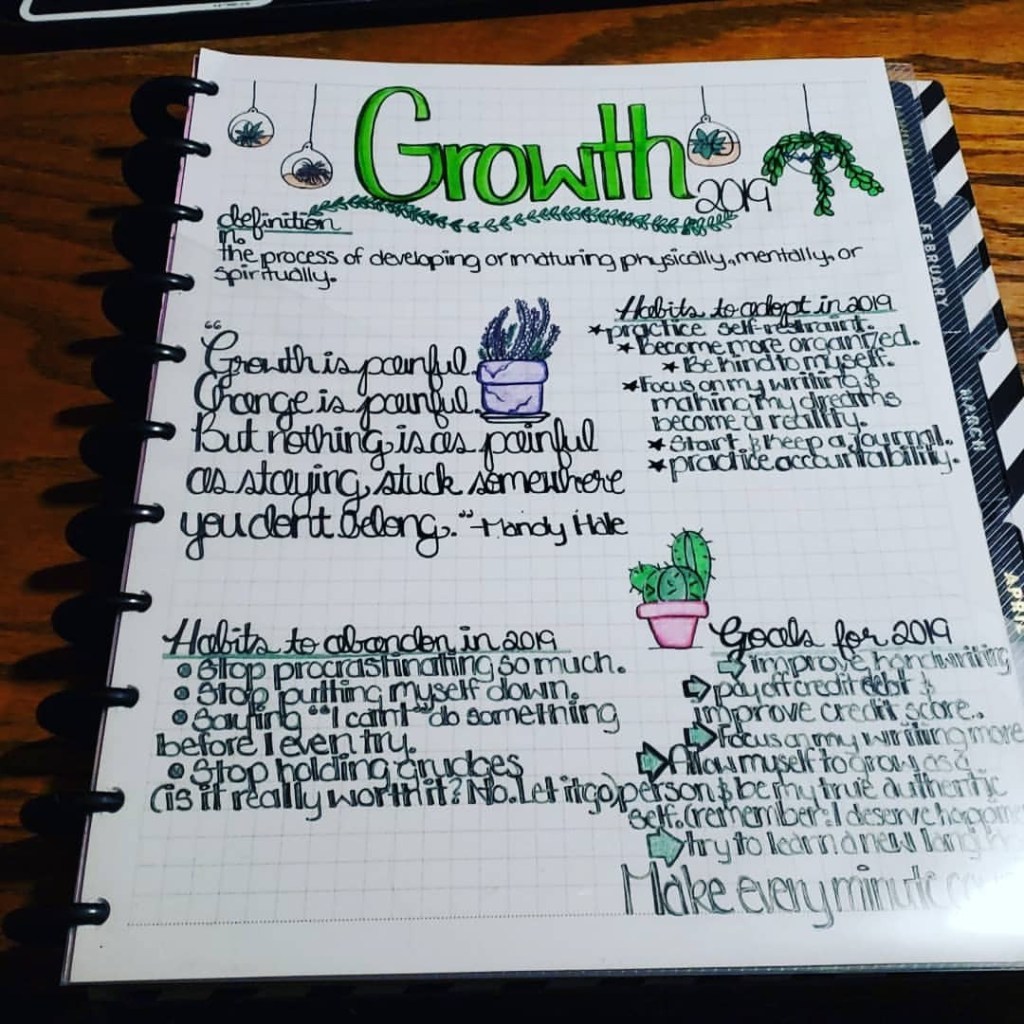 Growth
2019
definition
n.
the process of developing or maturing physically, mentally, or
spiritually.
"Growth is painful.
Change is painful.
But nothing is as painful
as staying stuck somewhere
you don't belong." -Mandy Hale
Habits to adopt in 2019
★practice self-restraint.
★Become more organized.
★Be kind to myself.
★Focus on my writing &
making my dreams
become a reality.
★Start & keep a journal.
★practice accountability.
Habits to abandon in 2019
•Stop procrastinating so much.
•Stop putting myself down.
•Saying "I can't" do something
before I even try.
•Stop holding grudges
(is it really worth it? No. Let it go)
Goals for 2019
improve handwriting
pay off credit debt &
improve credit score.
Focus on my writing more
Allow myself to grow as a
person & be my true authentic
self. (remember: I deserve
try to learn a new
Make every minute
FEBRUARY
MARCH